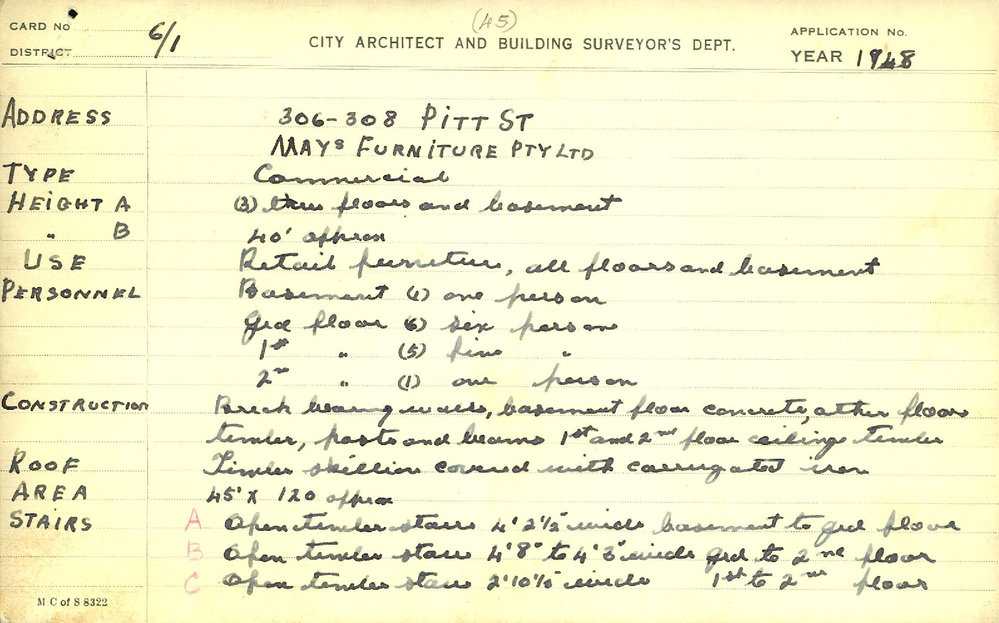 (45)
CARD No 6/1
DISTRICT
CITY ARCHITECT AND BUILDING SURVEYOR'S DEPT.
APPLICATION No.
YEAR 1948
ADDRESS 306-308 PITT ST
MAYS FURNITURE PTY LTD
TYPE Commercial
HEIGHT A (3) three floors and basement
" B 40' approx
USE Retail furniture, all floors and basement
PERSONNEL Basement (1) one person
Grd floor (6) six persons
1st " (5) five "
2nd " (1) one person
CONSTRUCTION Brick bearing walls, basement floor concrete, other floors
timber, posts and beams 1st and 2nd floor ceilings timber
ROOF Timber skillion covered with corrugated iron
AREA 45' x 120 approx
STAIRS A Open timber stairs 4' 2½" wide basement to grd floor
B Open timber stairs 4'8" to 4'3" wide grd to 2nd floor
C Open timber stairs 2'10½" wide 1st to 2nd floor
M C of S 8322